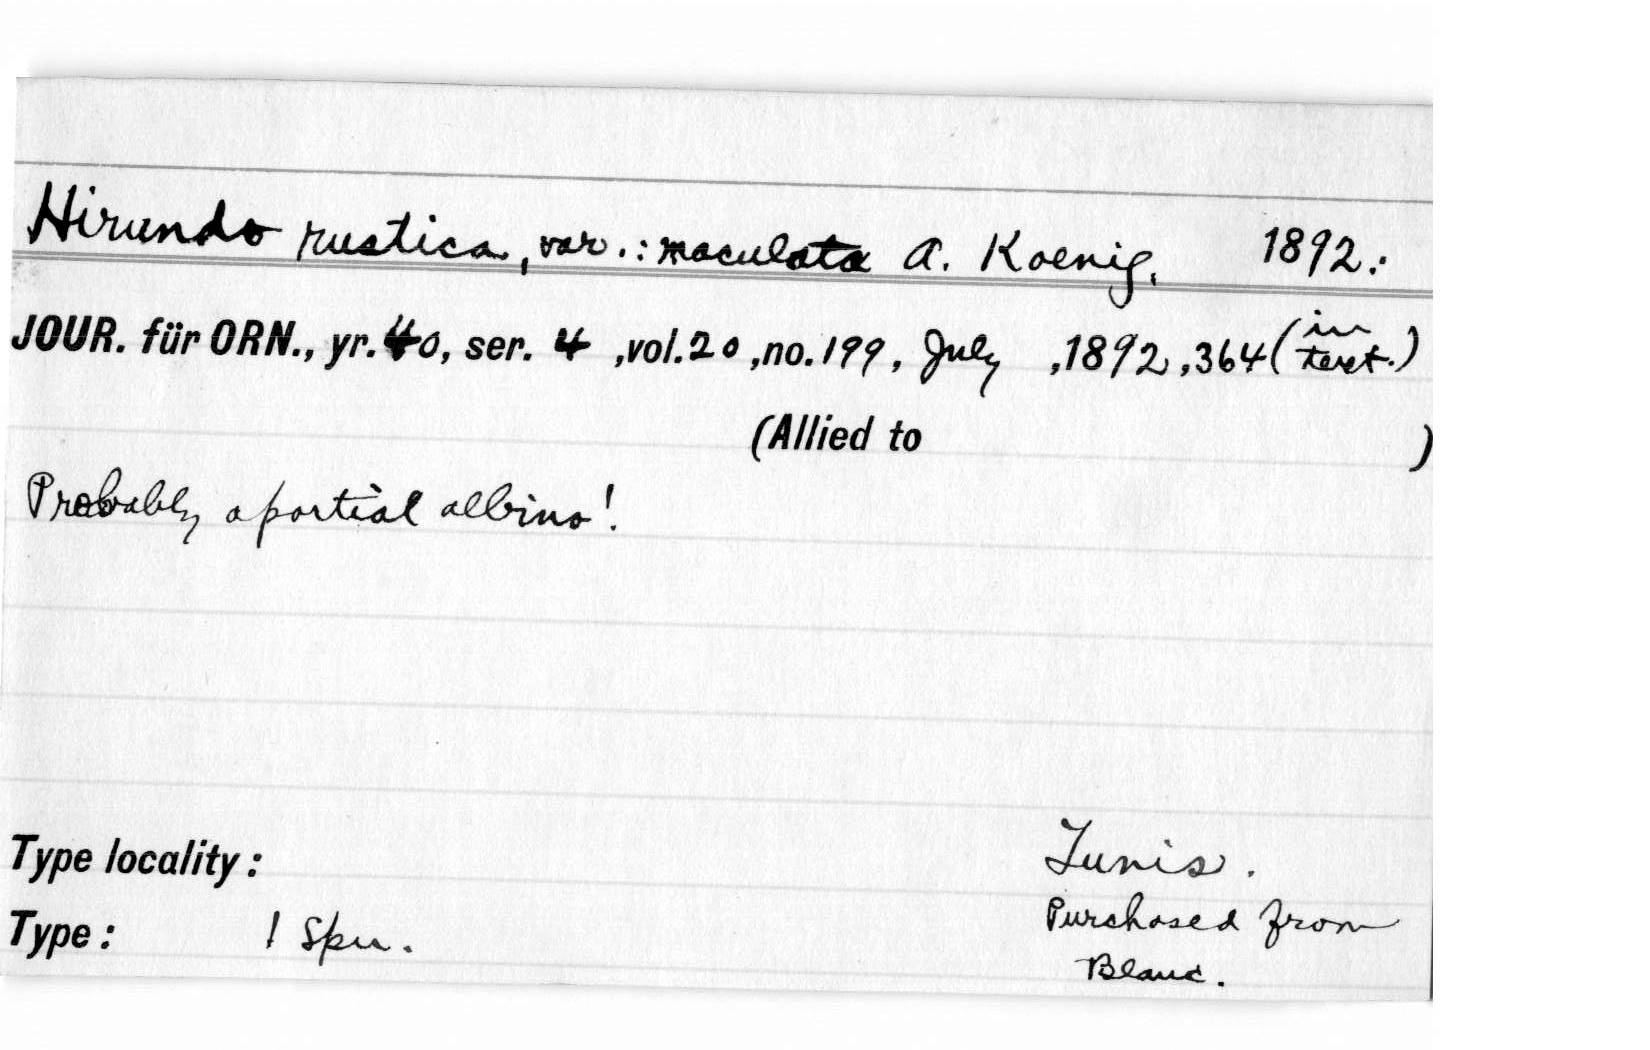 Hirundo rustica, var.: maculata A. Koenig. 1892.:
JOUR. für ORN., yr. 40, ser. 4 ,vol. 20 ,no. 199, July ,1892, 364 (in text.)
(Allied to )
Probably a partial albino!
Type locality: Tunis.
Type: 1 Spm. Purchased from
Blanc.